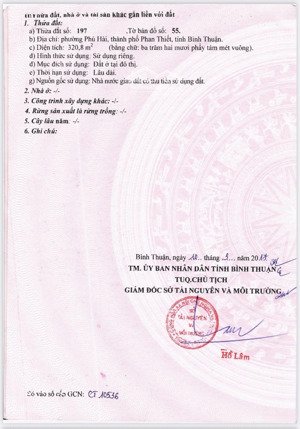 Thửa đất, nhà ở và tài sản khác gắn liền với đất
1. Thửa đất:
a) Thửa đất số: 197 ,Tờ bản đồ số: 55.
b) Địa chỉ: phường Phú Hài, thành phố Phan Thiết, tỉnh Bình Thuận.
c) Diện tích: 320,8 m² (bằng chữ: ba trăm hai mươi phẩy tám mét vuông).
d) Hình thức sử dụng: Sử dụng riêng.
đ) Mục đích sử dụng: Đất ở tại đô thị.
e) Thời hạn sử dụng: Lâu dài.
g) Nguồn gốc sử dụng: Nhà nước giao đất có thu tiền sử dụng đất.
2. Nhà ở: -/-
3. Công trình xây dựng khác: -/-
4. Rừng sản xuất là rừng trồng: -/-
5. Cây lâu năm: -/-
6. Ghi chú:
Bình Thuận, ngày tháng năm
TM. ỦY BAN NHÂN DÂN TỈNH BÌNH THUẬN
TUQ.CHỦ TỊCH
GIÁM ĐỐC SỞ TÀI NGUYÊN VÀ MÔI TRƯỜNG
SỞ
TÀI NGUYÊN
VÀ
MÔI TRƯỜNG
Số vào sổ cấp GCN: CT 10536